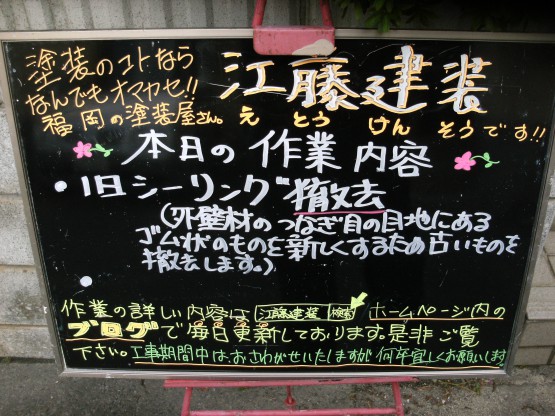 塗装のコトなら
なんでもオマカセ!!
福岡の塗装屋さん。
江藤建装
えとうけんそうです!!
本日の作業内容
・旧シーリング撤去
(外壁材のつなぎ目の目地にある
ゴム状のものを新しくするため古いものを
撤去します。)
作業の詳しい内容は 江藤建装 検索 ホームページ内の
ブログで毎日更新しております。是非ご覧
下さい。工事期間中はおさわがせいたしますが何卒宜しくお願いします